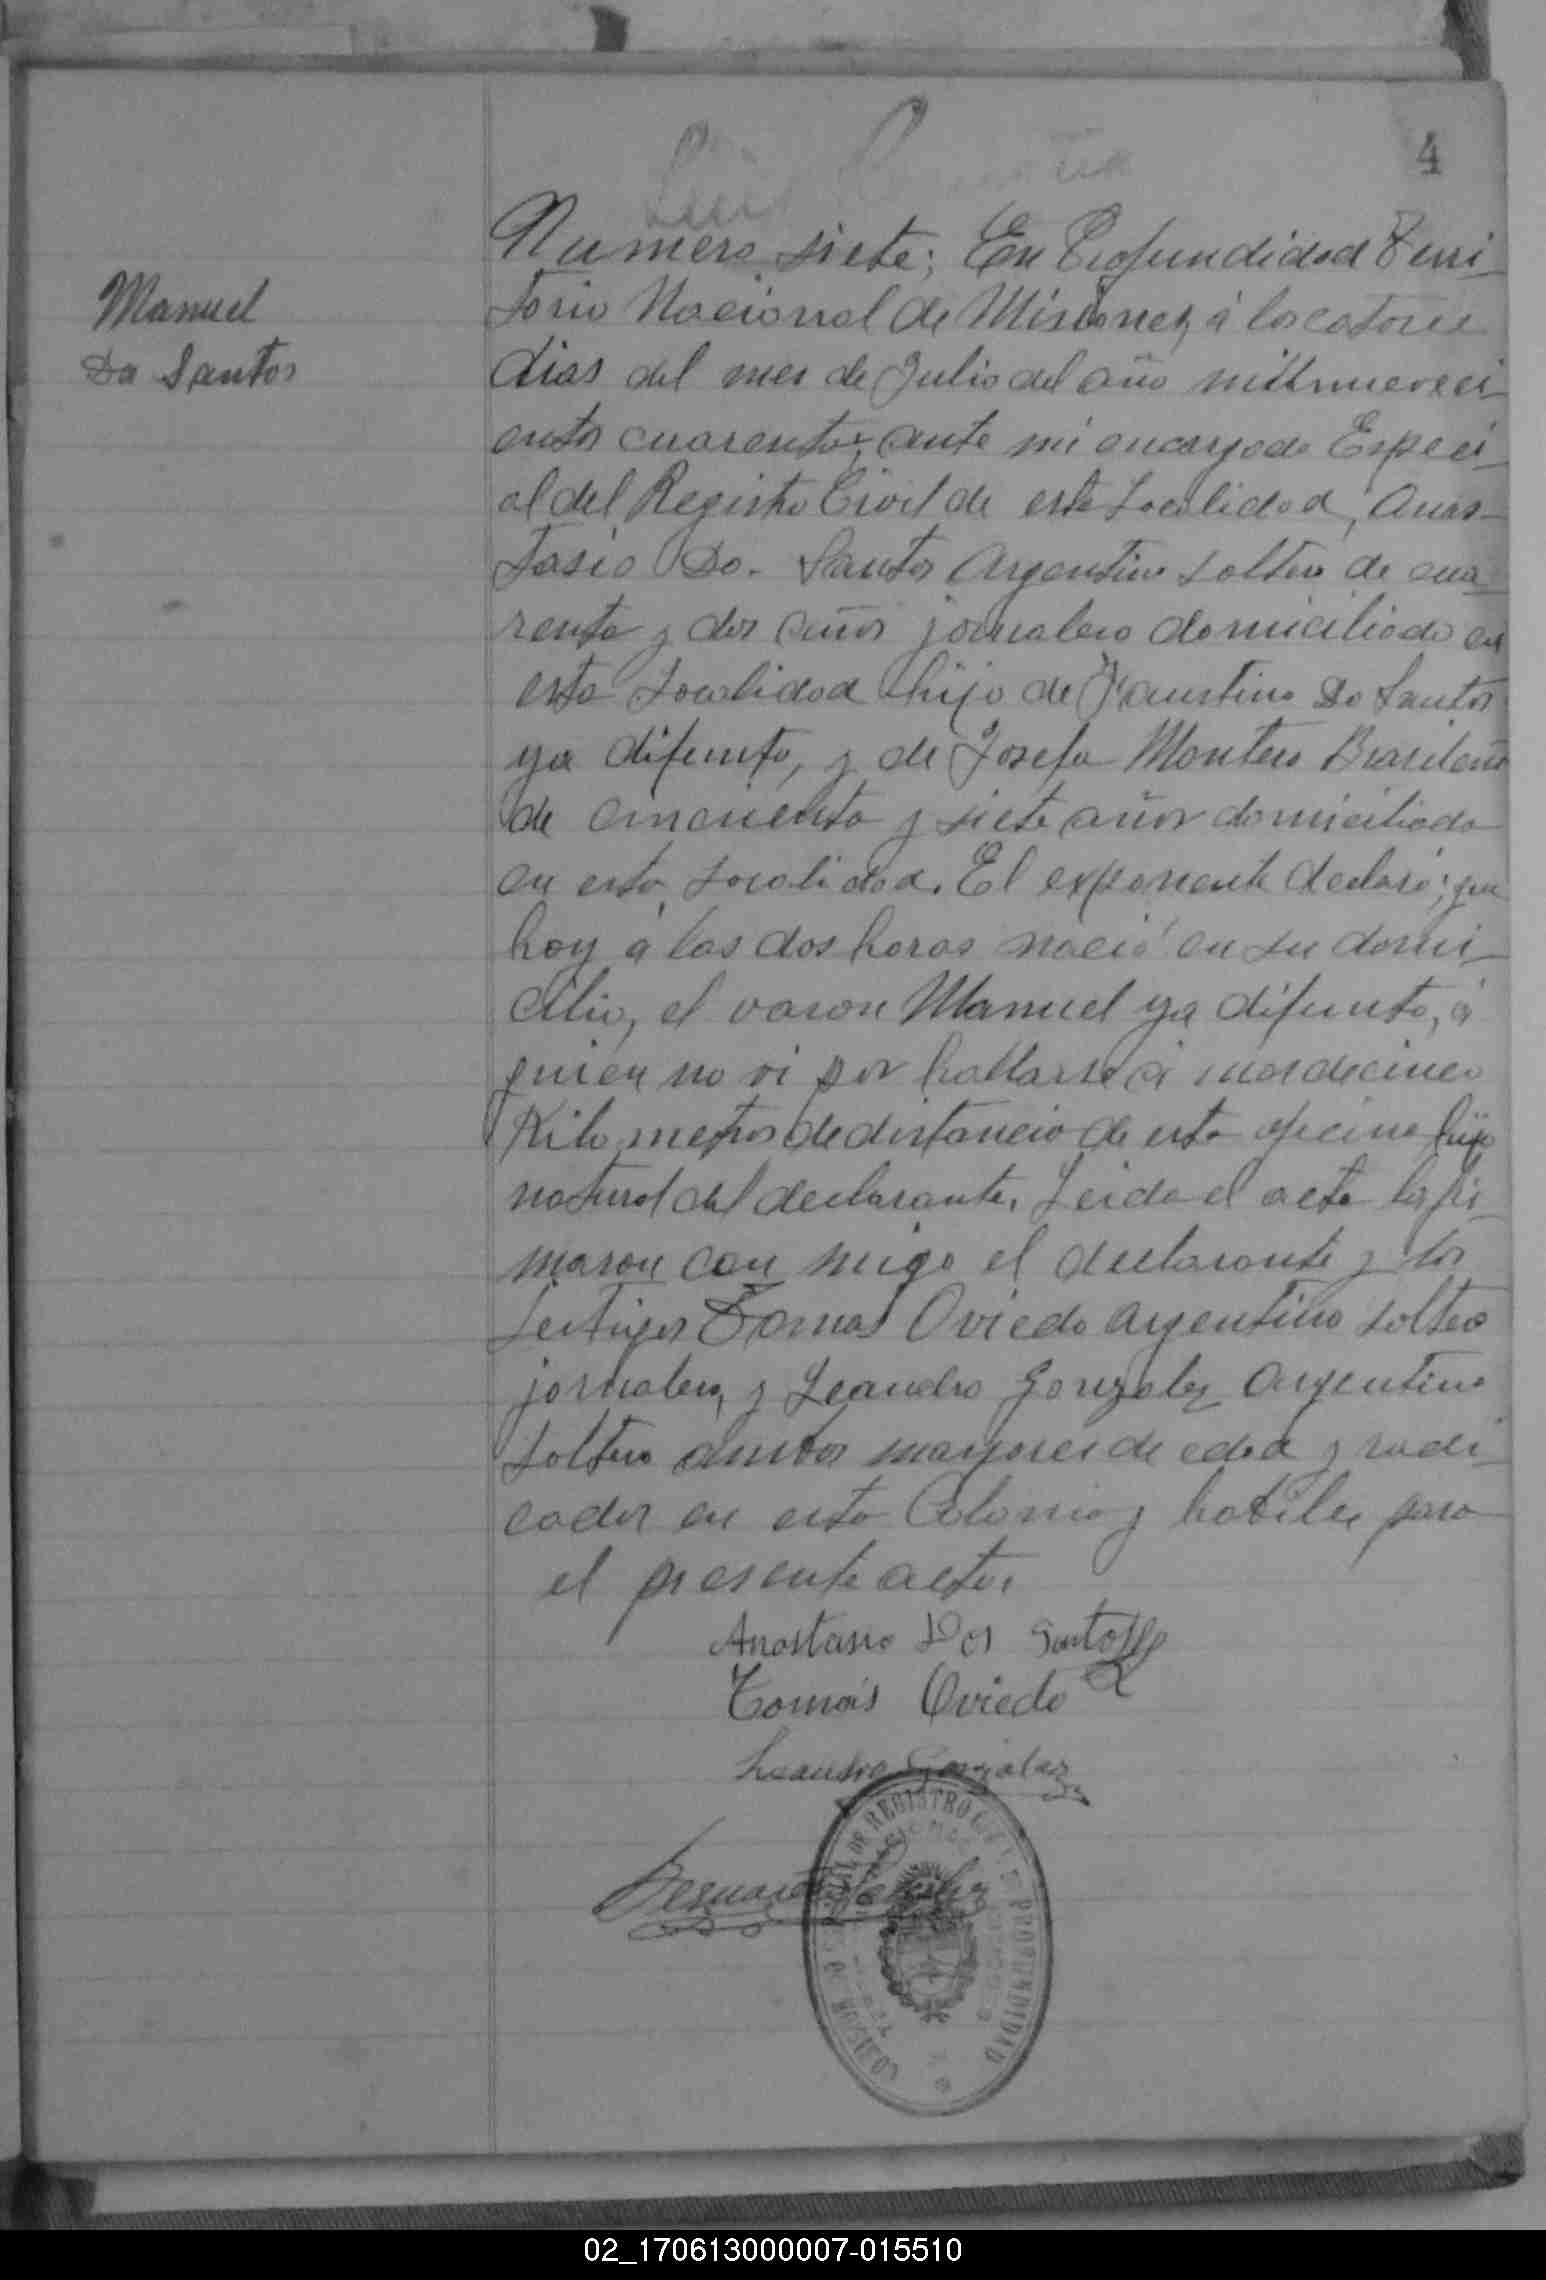 4
Manuel
Do Santos
Numero siete; En Profundidad Terri-
torio Nacional de Misiones, á los catorce
dias del mes de Julio del año mil nueveci-
entos cuarenta; ante mi encargado Especi-
al del Registro Civil de esta Localidad, Anas-
tasio Do. Santos Argentino soltero de cua-
renta y dos años jornalero domiciliado en
esta Localidad hijo de Faustino Do Santos
ya difunto, y de Josefa Montero Brasilera
de cincuenta y siete años domiciliada
en esta Localidad. El exponente declaró; que
hoy á las dos horas nació en su domi-
cilio, el varon Manuel ya difunto, á
quien no vi por hallarse á mas de cinco
Kilometros de distancia de esta oficina hijo
natural del declarante. Leida el acta la fir
maron con migo el declarante y los
testigos Tomas Oviedo argentino soltero
jornalero, y Leandro Gonzalez Argentino
soltero ambos mayores de edad y radi-
cados en esta Colonia y habiles para
el presente acto.
Anastasio Dos Santos
Tomás Oviedo
Leandro Gonzalez
Bernardo
REGISTRO CIVIL PROFUNDIDAD
02_170613000007-015510